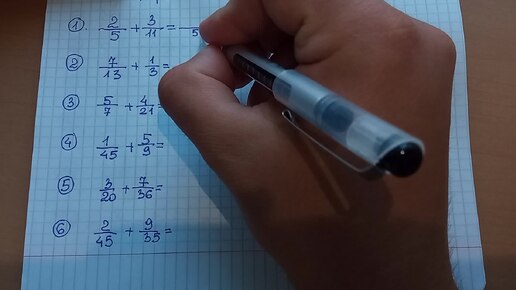 ① 2/5 + 3/11 = —/5
② 7/13 + 1/3 =
③ 5/7 + 4/21 =
④ 1/45 + 5/9 =
⑤ 3/20 + 7/36 =
⑥ 2/45 + 9/35 =